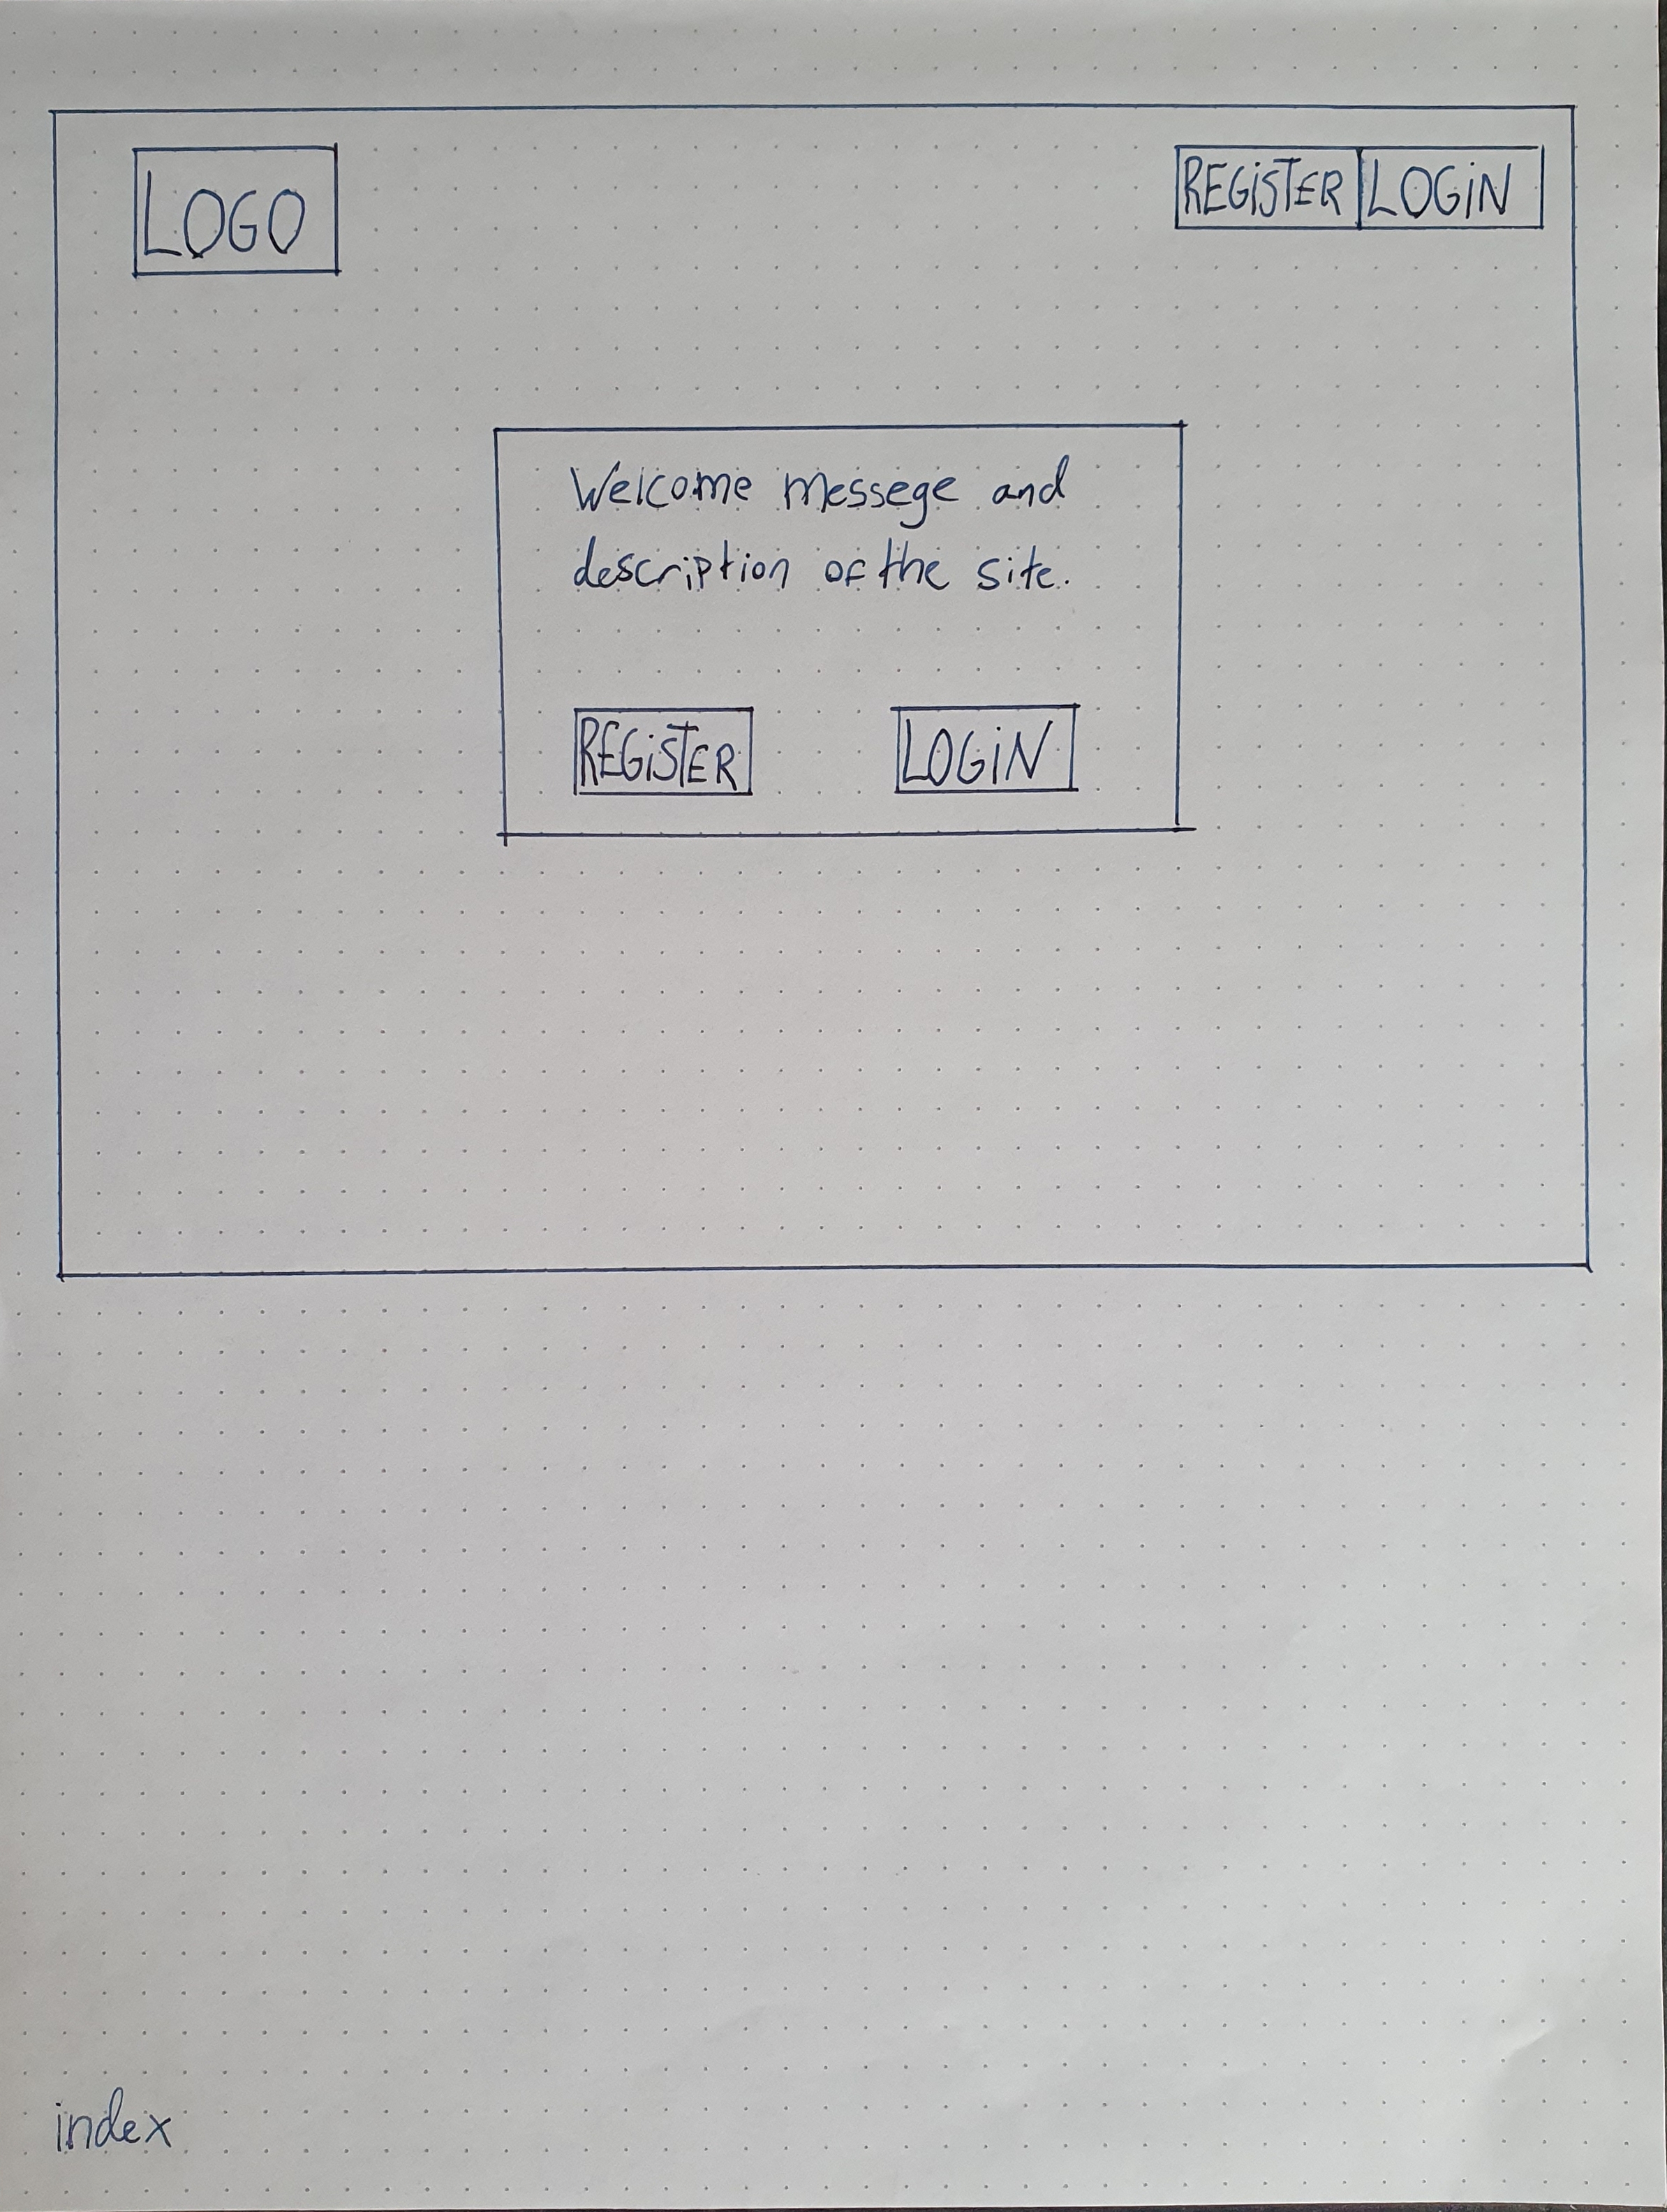 LOGO
REGiSTER LOGiN
Welcome messege and
description of the site.
REGiSTER LOGiN
index